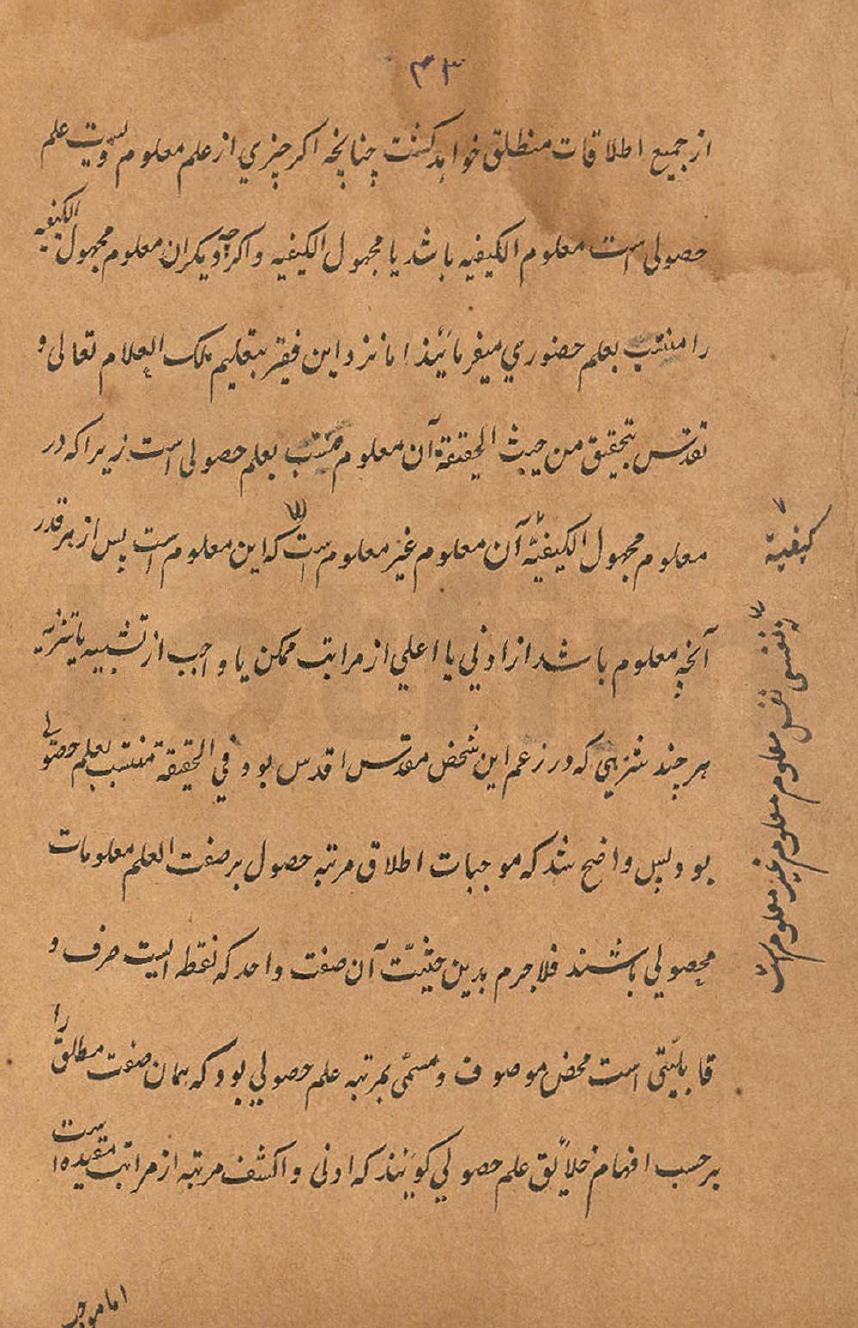 ۴۳
از جمیع اطلاقات منطلق خواهد گشت چنانچه اگر چیزی از علم معلوم علم
حصولی است معلوم الکیفیه باشد یا مجهول الکیفیه و اگرچه دیگران معلوم مجهول الکیفیه
را منتسب بعلم حضوری میفرمائند اما نزد این فقیر بتعلیم ملک العلام تعالی و
تقدس بتحقیق من حیث الحقیقة آن معلوم منتسب بعلم حصولی است زیرا که در
معلوم مجهول الکیفیّه آن معلوم غیر معلوم است که این معلوم است پس از هر قدر
آنچه معلوم باشد از ادنی یا اعلی از مراتب ممکن یا واجب از تشبیه یا تنزیه
هر چند تنزیهی که در زعم این شخص مقدس اقدس بود فی الحقیقة منتسب بعلم حصولی
بود پس واضح شد که موجبات اطلاق مرتبه حصول بر صفت العلم معلومات
محصولی باشند فلاجرم بدین حیثیّت آن صفت واحد که نقطه ایست صرف و
قابلیّتی است محض موصوف و مسمّی بمرتبه علم حصولی بود که همان صفت مطلق را
بر حسب افهام خلائق علم حصولی گویند که ادنی و اکشف مرتبه از مراتب مقیده است
کیفیة
نفسی نفس معلوم معلوم غیر معلوم است